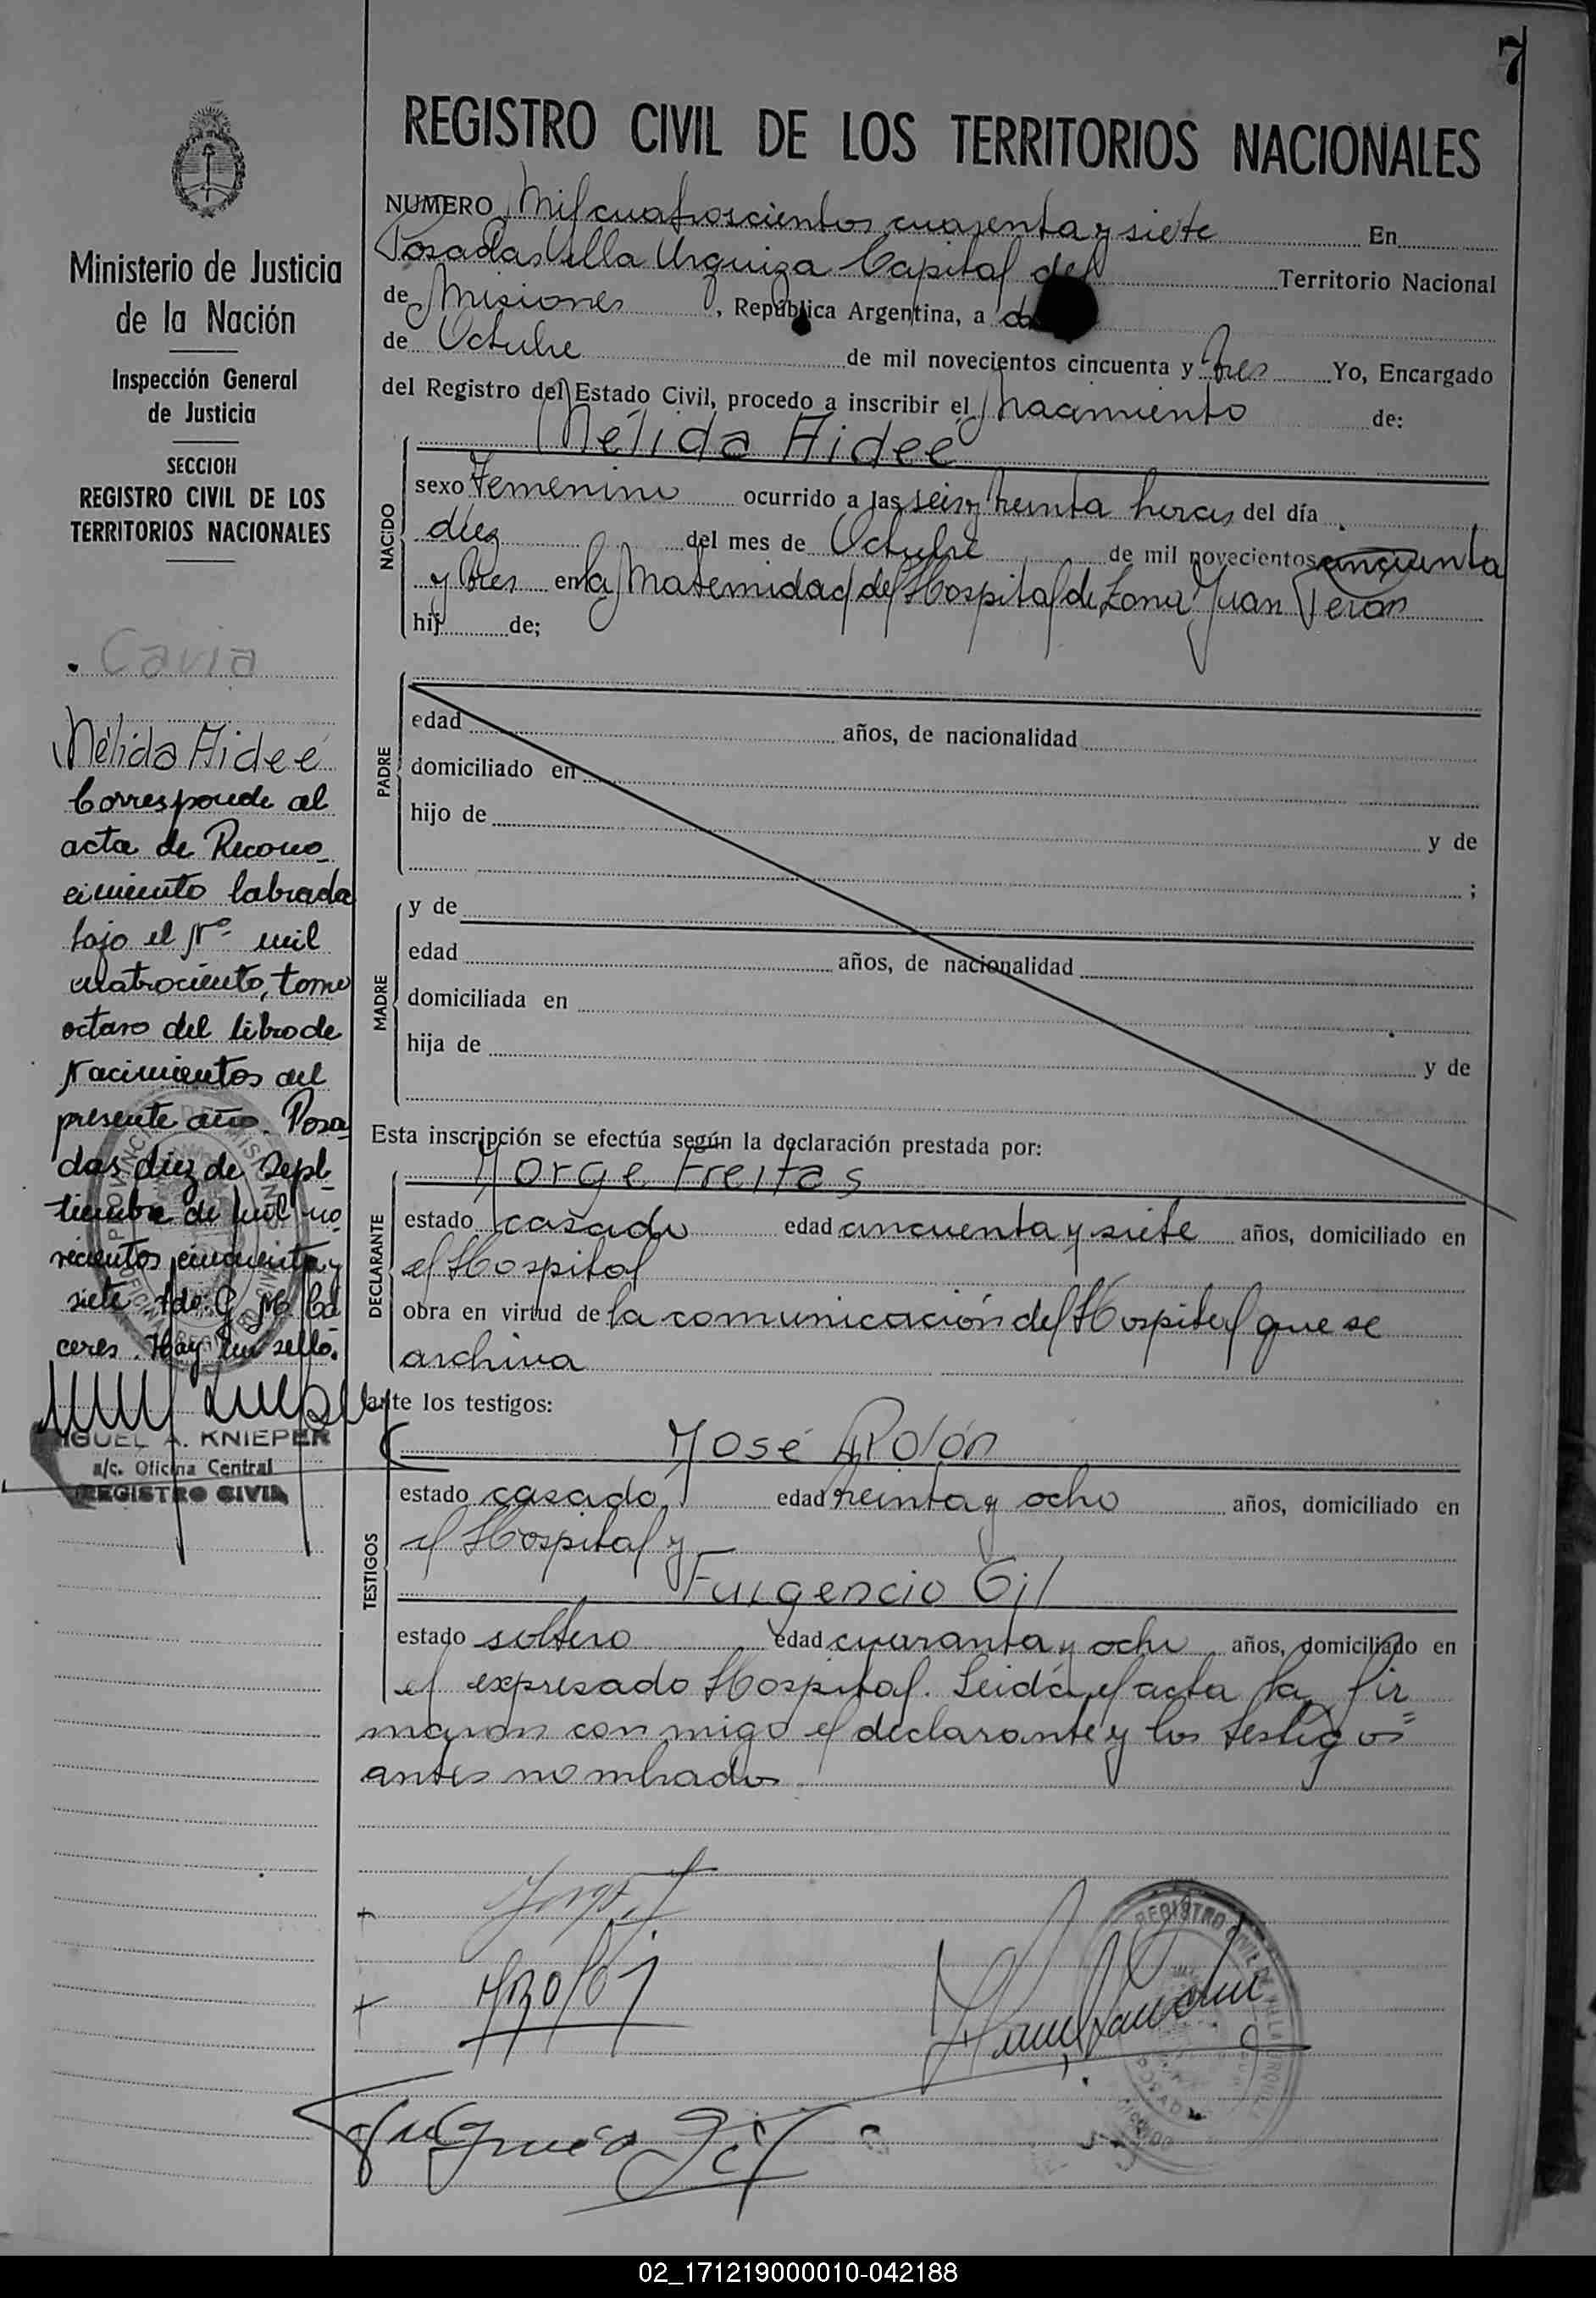 7
REGISTRO CIVIL DE LOS TERRITORIOS NACIONALES
Ministerio de Justicia
de la Nación
Inspección General
de Justicia
SECCION
REGISTRO CIVIL DE LOS
TERRITORIOS NACIONALES
Cavia
Nélida Aideé
Corresponde al
acta de Recono_
cimiento labrada
bajo el Nº mil
cuatrociento, tomo
octavo del libro de
Nacimientos del
presente año. Posa
das, diez de Sept
tiembre de mil no_
vecientos cincuenta y
siete fdo: G. M. Cá
ceres. Hay un sello.
MIGUEL A. KNIEPER
a/c. Oficina Central
REGISTRO CIVIL
NUMERO Mil cuatroscientos cuarenta y siete En
Posadas Villa Urquiza Capital del Territorio Nacional
de Misiones, República Argentina, a
de Octubre de mil novecientos cincuenta y tres Yo, Encargado
del Registro del Estado Civil, procedo a inscribir el Nacimiento de:
NACIDO
Nélida Aideé
sexo Femenino ocurrido a las seis y treinta horas del día
diez del mes de Octubre de mil novecientos cincuenta
y tres en la Maternidad del Hospital de Zona Juan Perón
hij de;
PADRE
edad años, de nacionalidad
domiciliado en
hijo de y de
;
MADRE
y de
edad años, de nacionalidad
domiciliada en
hija de y de
Esta inscripción se efectúa según la declaración prestada por:
DECLARANTE
Jorge Freitas
estado casado edad cincuenta y siete años, domiciliado en
el Hospital
obra en virtud de la comunicación del Hospital que se
archiva
ante los testigos:
TESTIGOS
José Rolón
estado casado edad treinta y ocho años, domiciliado en
el Hospital y
Fulgencio Gil
estado soltero edad cuaranta y ocho años, domiciliado en
el expresado Hospital. Leida el acta la fir
maron con migo el declarante y los testigos
antes nombrados
Fulgencio Gil
REGISTRO CIVIL
02_171219000010-042188